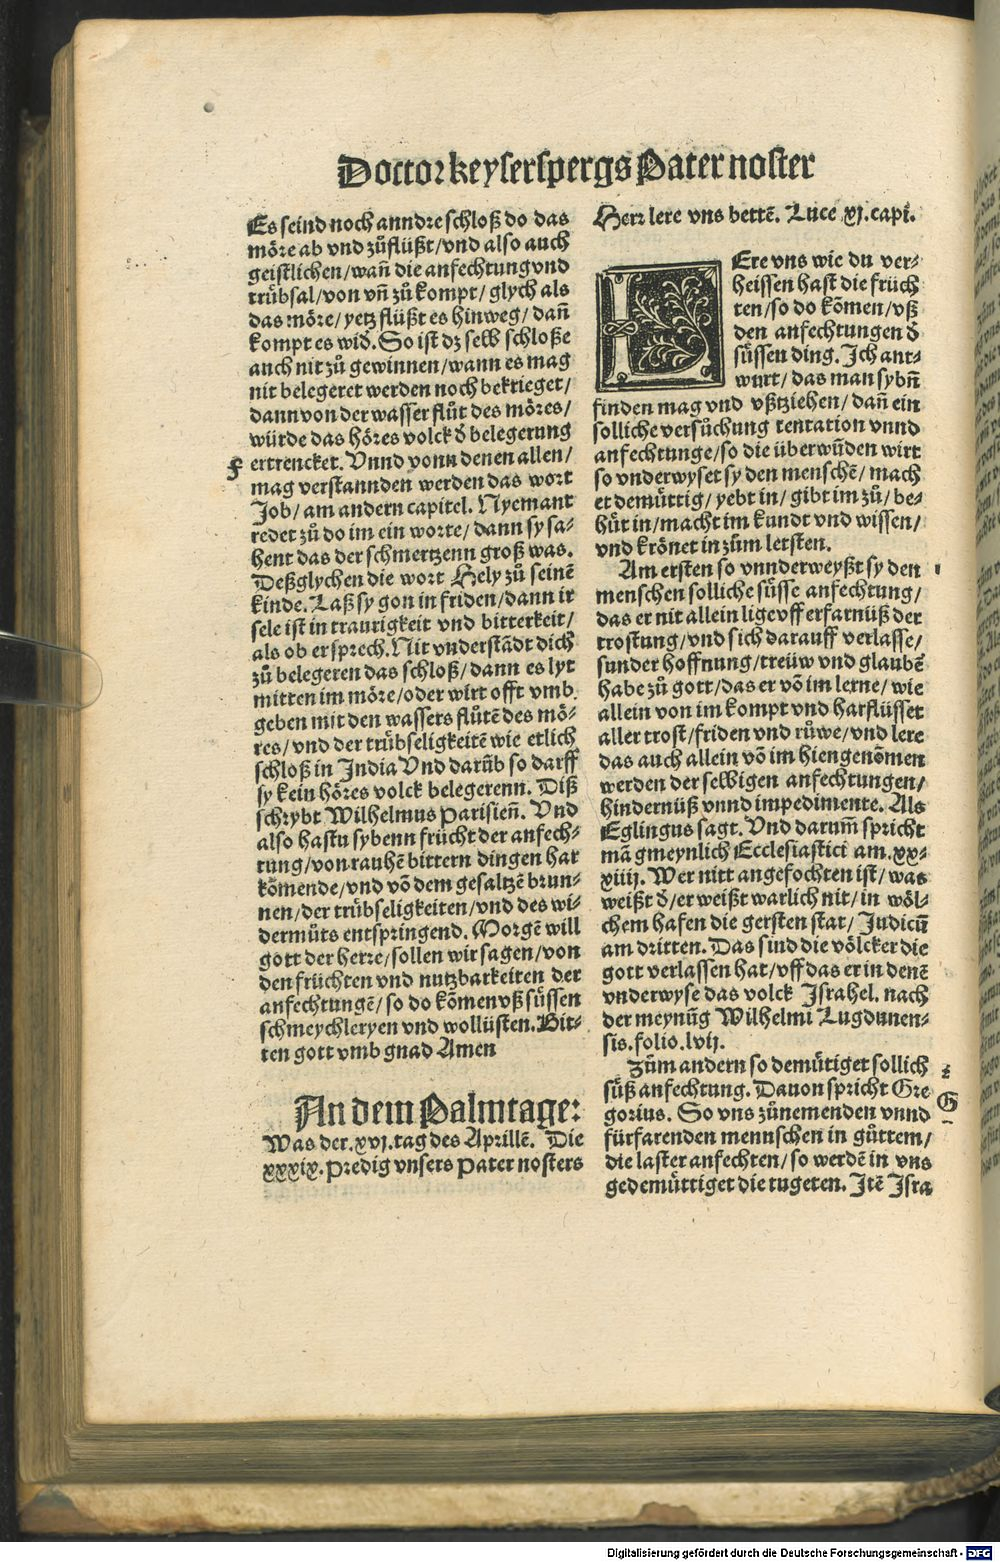 Doctor keyserspergs Pater noster
Es seind noch anndre schloß do das
möre ab vnd zůflüßt/vnd also auch
geistlichen/wañ die anfechtung vnd
trübsal/von vñ zů kompt/glych als
das möre/yetz flüßt es hinweg/dañ
kompt es wiđ. So ist dz selb schloße
auch nit zů gewinnen/wann es mag
nit belegeret werden noch bekrieget/
dann von der wasser flůt des möres/
würde das höres volck đ belegerung
F
ertrencket. Vnnd vonn denen allen/
mag verstannden werden das wort
Job/am andern capitel. Nyemant
redet zů do im ein worte/dann sy sa⸗
hent das der schmertzenn groß was.
Deßglychen die wort Hely zů seinē
kinde. Laß sy gon in friden/dann ir
sele ist in traurigkeit vnd bitterkeit/
als ob er sprech. Nit vnderstādt dich
zů belegeren das schloß/dann es lyt
mitten im möre/oder wirt offt vmb
geben mit den wassers flůtē des mö⸗
res/vnd der trübseligkeitē wie etlich
schloß in India Vnd darūb so darff
sy kein höres volck belegerenn. Diß
schrybt Wilhelmus Parisieñ. Vnd
also hastu sybenn frücht der anfech⸗
tung/von rauhē bittern dingen har
kōmende/vnd vō dem gesaltzē brun⸗
nen/der trübseligkeiten/vnd des wi⸗
dermůts entspringend. Morgē will
gott der herre/sollen wir sagen/von
den früchten vnd nutzbarkeiten der
anfechtungē/so do kōmen vß süssen
schmeychleryen vnd wollüsten. Bit⸗
ten gott vmb gnad Amen
An dem Palmtage:
Was der.xvj.tag des Aprillē. Die
xxxix.Predig vnsers Pater nosters
Herr lere vns bettē. Luce xj.capi.
LEre vns wie du ver⸗
heissen hast die früch
ten/so do kōmen/vß
den anfechtungen đ
süssen ding. Ich ant⸗
wurt/das man sybñ
finden mag vnd vßtziehen/dañ ein
solliche versůchung tentation vnnd
anfechtunge/so die überwūden wirt
so vnderwyset sy den menschē/mach
et demüttig/yebt in/gibt im zů/be⸗
hüt in/macht im kundt vnd wissen/
vnd krönet in zům letsten.
Am ersten so vnnderweyßt sy den
1
menschen solliche süsse anfechtung/
das er nit allein lige vff erfarnüß der
trostung/vnd sich darauff verlasse/
sunder hoffnung/treüw vnd glaubē
habe zů gott/das er vō im lerne/wie
allein von im kompt vnd harflüsset
aller trost/friden vnd růwe/vnd lere
das auch allein vō im hiengenōmen
werden der selbigen anfechtungen/
hindernüß vnnd impedimente. Als
Eglingus sagt. Vnd darum̄ spricht
mā gmeynlich Ecclesiastici am.xx⸗
xiiij. Wer nitt angefochten ist/was
weißt đ/er weißt warlich nit/in wöl⸗
chem hafen die gersten stat/Judicū
am dritten. Das sind die völcker die
gott verlassen hat/vff das er in denē
vnderwyse das volck Israhel. nach
der meynūg Wilhelmi Lugdunen⸗
sis.folio.lvij.
Zům andern so demütiget sollich
2
süß anfechtung. Dauon spricht Gre
G
gorius. So vns zůnemenden vnnd
fürfarenden mennschen in gůttem/
die laster anfechten/so werdē in vns
gedemüttiget die tugeten. Itē Isra
Digitalisierung gefördert durch die Deutsche Forschungsgemeinschaft - DFG